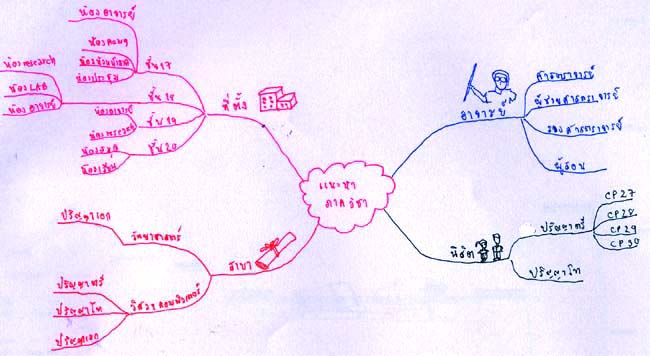 แนะนำ
ภาควิชา
ที่ตั้ง
ชั้น 17
ห้องอาจารย์
ห้องประชุม
ชั้น 18
ห้อง research
ห้อง LAB
ห้องอาจารย์
ชั้น 19
ห้องอาจารย์
ห้อง research
ชั้น 20
ห้องสมุด
ห้องเรียน
อาจารย์
ศาสตราจารย์
ผู้ช่วยศาสตราจารย์
รองศาสตราจารย์
ผู้สอน
นิสิต
ปริญญาตรี
CP27
CP28
CP29
CP30
ปริญญาโท
สาขา
วิทยาศาสตร์
ปริญญาเอก
วิศวฯ คอมพิวเตอร์
ปริญญาตรี
ปริญญาโท
ปริญญาเอก